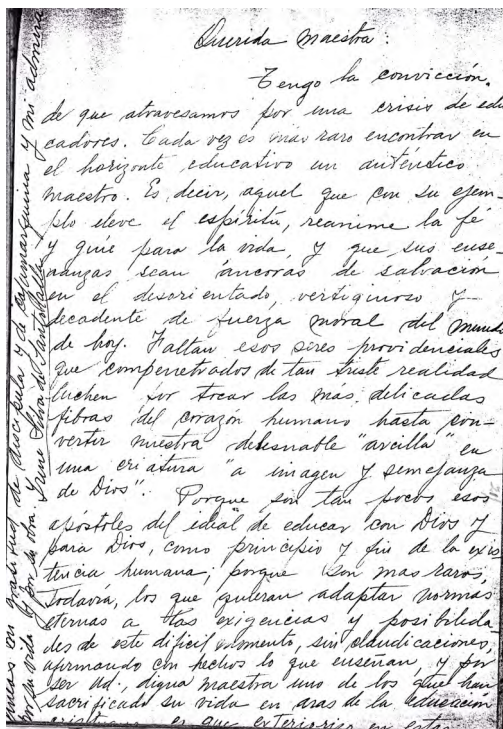 Querida Maestra:
Tengo la convicción,
de que atravesamos por una crisis de edu
cadores. Cada vez es más raro encontrar en
el horizonte educativo un auténtico
maestro. Es decir, aquel que con su ejem-
plo eleve el espíritu, reanime la fé
y guíe para la vida, y que sus ense-
ñanzas sean áncoras de salvación
en el desorientado, vertiginoso y
decadente de fuerza moral del mundo
de hoy. Faltan esos seres providenciales
que compenetrados de tan triste realidad
luchen por tocar las más delicadas
fibras del corazón humano hasta con-
vertir nuestra deleznable "arcilla" en
una criatura "a imagen y semejanza
de Dios". Porque son tan pocos esos
apóstoles del ideal de educar con Dios y
para Dios, como principio y fin de la exis
tencia humana; porque son mas raros,
todavía, los que quieran adaptar normas
eternas a las exigencias y posibilida
des de este difícil momento, sin claudicaciones,
afirmando con hechos lo que enseñan, y por
ser Ud., digna maestra uno de los que han
sacrificado su vida en aras de la educación
cristiana es que exteriorice en estas
líneas mi gratitud de discípula y de cajamarquina y mi admira
por su vida y por su obra. Irene Silva de Santolalla